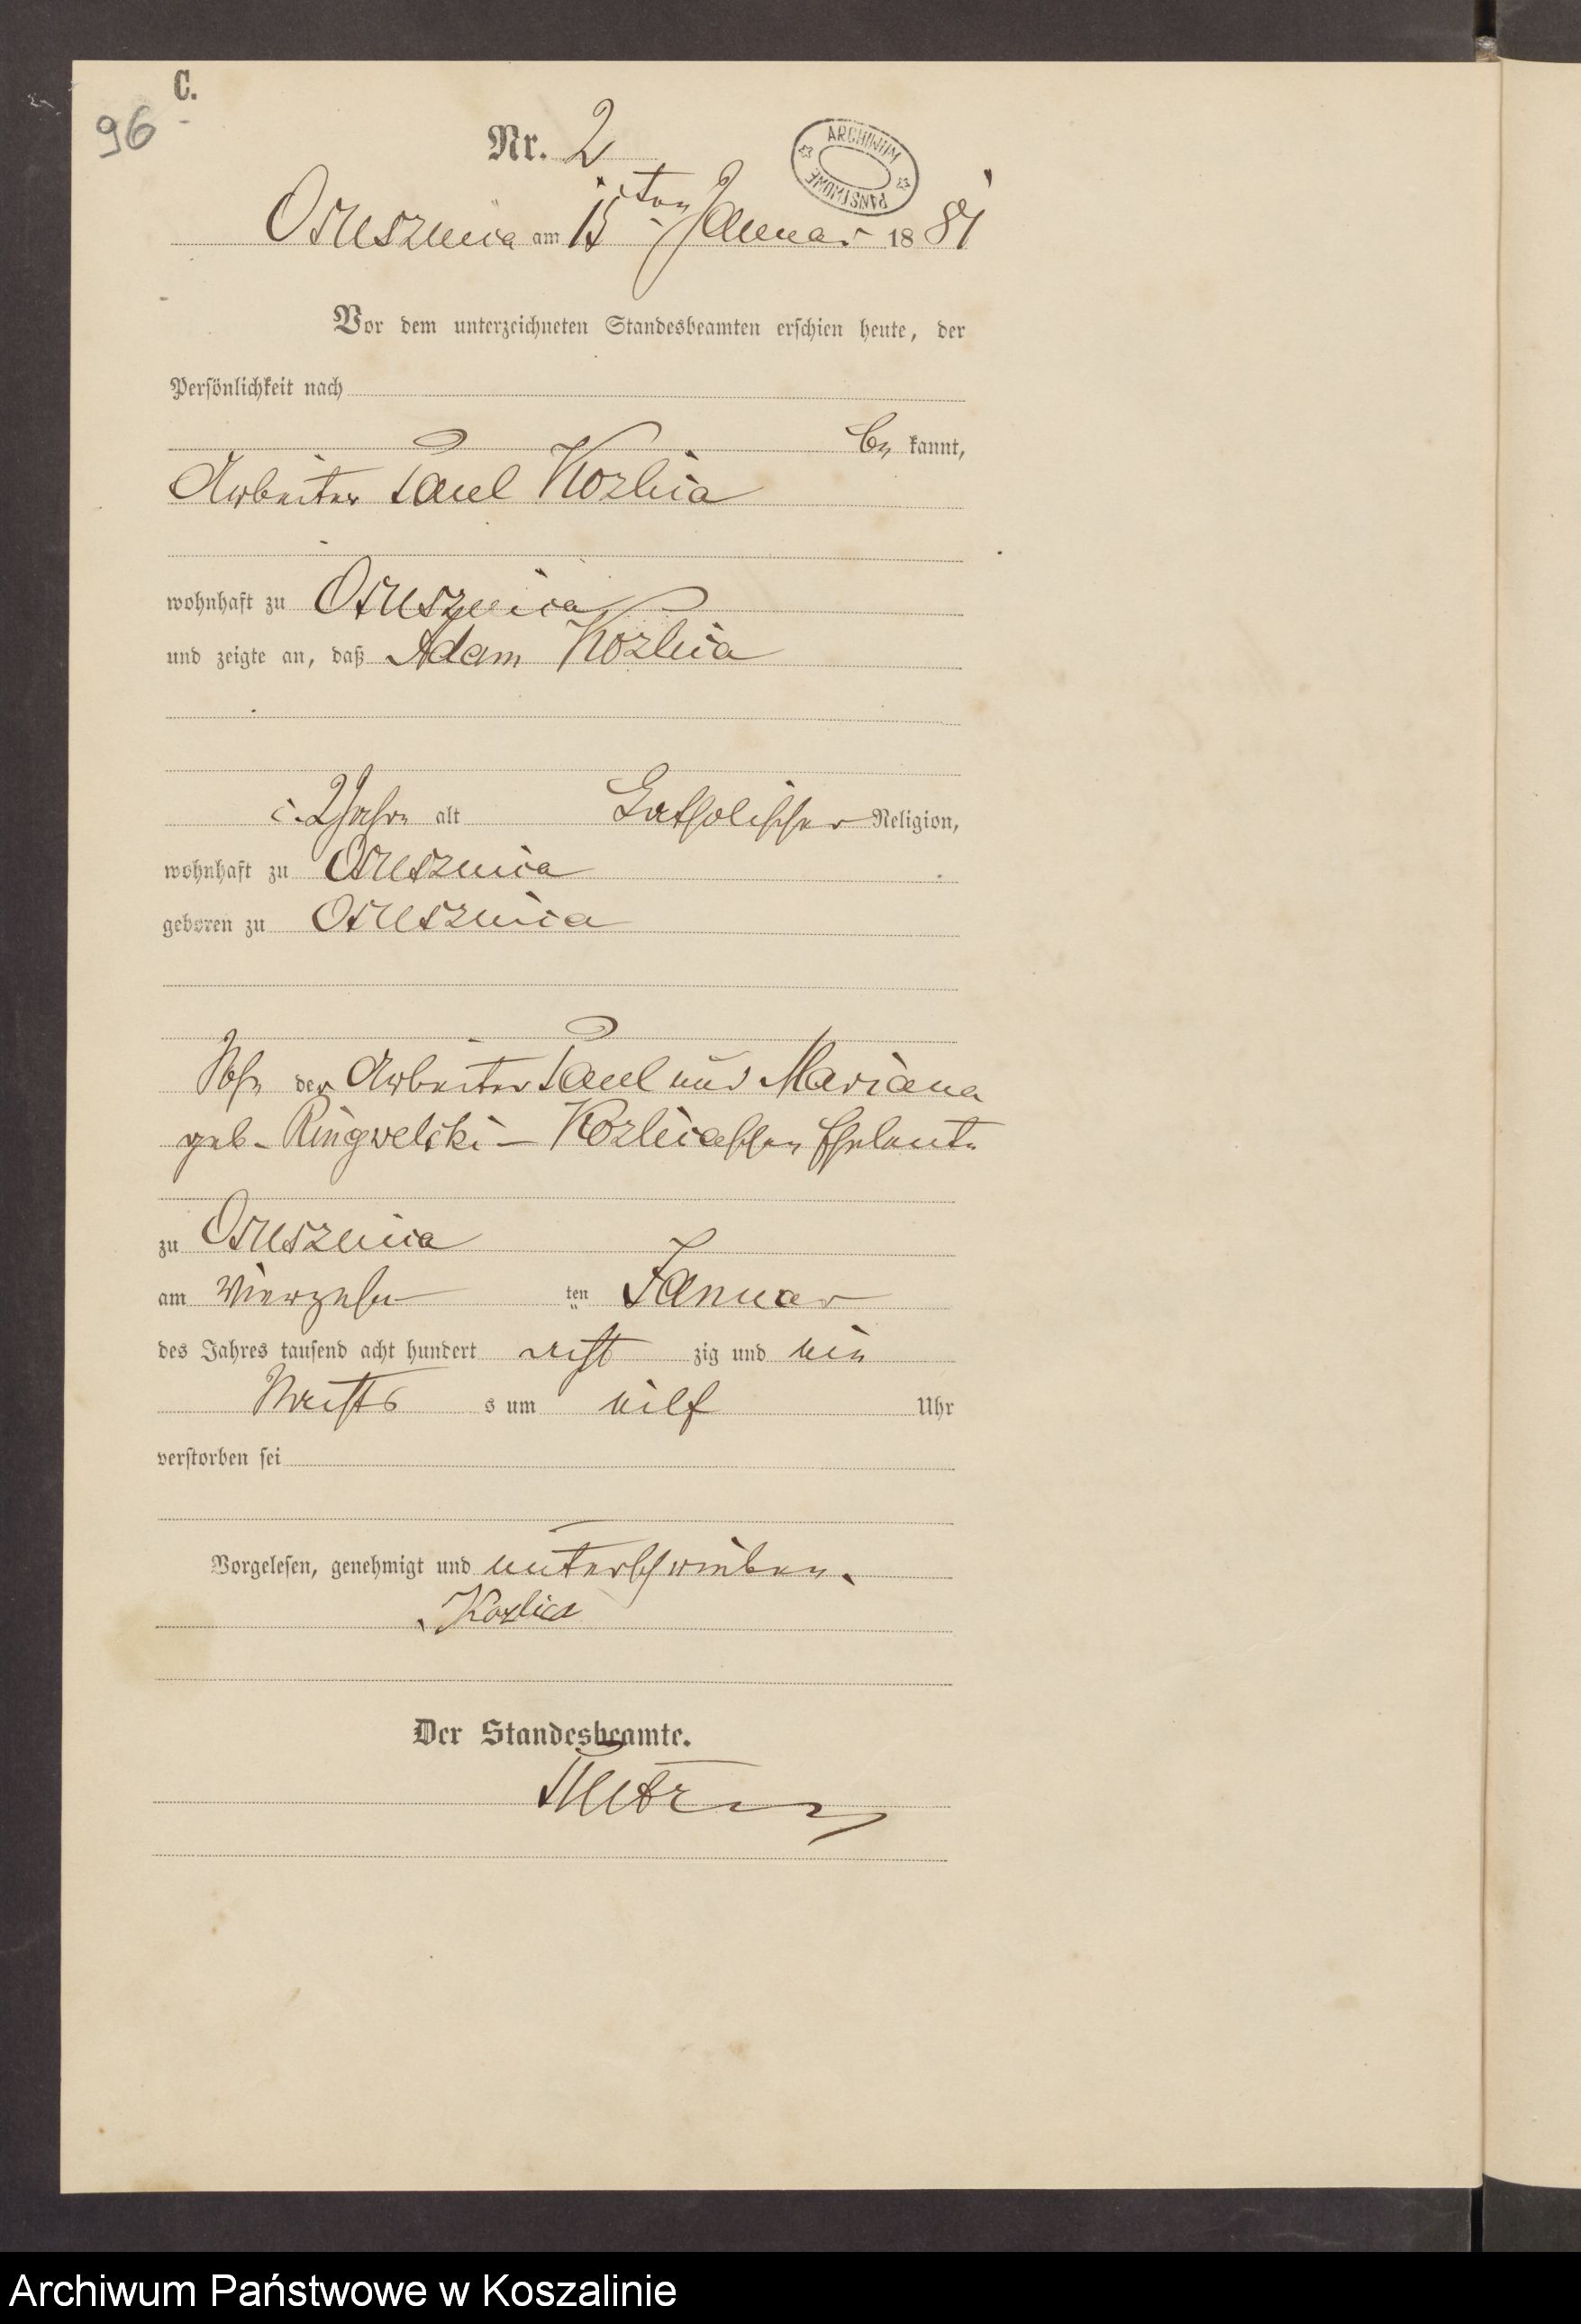 C.
96
Nr. 2
ARCHIWUM PAŃSTWOWE
Osusznica am 15ten Januar 1881
Vor dem unterzeichneten Standesbeamten erschien heute, der
Persönlichkeit nach
be kannt,
Arbeiter Paul Kozlica
wohnhaft zu Osusznica
und zeigte an, daß Adam Kozlica
2 Jahre alt Catholischer Religion,
wohnhaft zu Osusznica
geboren zu Osusznica
Sohn der Arbeiter Paul und Mariana
geb. Ringwelski - Kozlicaschen Eheleute
zu Osusznica
am Vierzehn ten Januar
des Jahres tausend acht hundert acht zig und ein
Nachts s um eilf Uhr
verstorben sei
Vorgelesen, genehmigt und unterschrieben.
Kozlica
Der Standesbeamte.
Archiwum Państwowe w Koszalinie